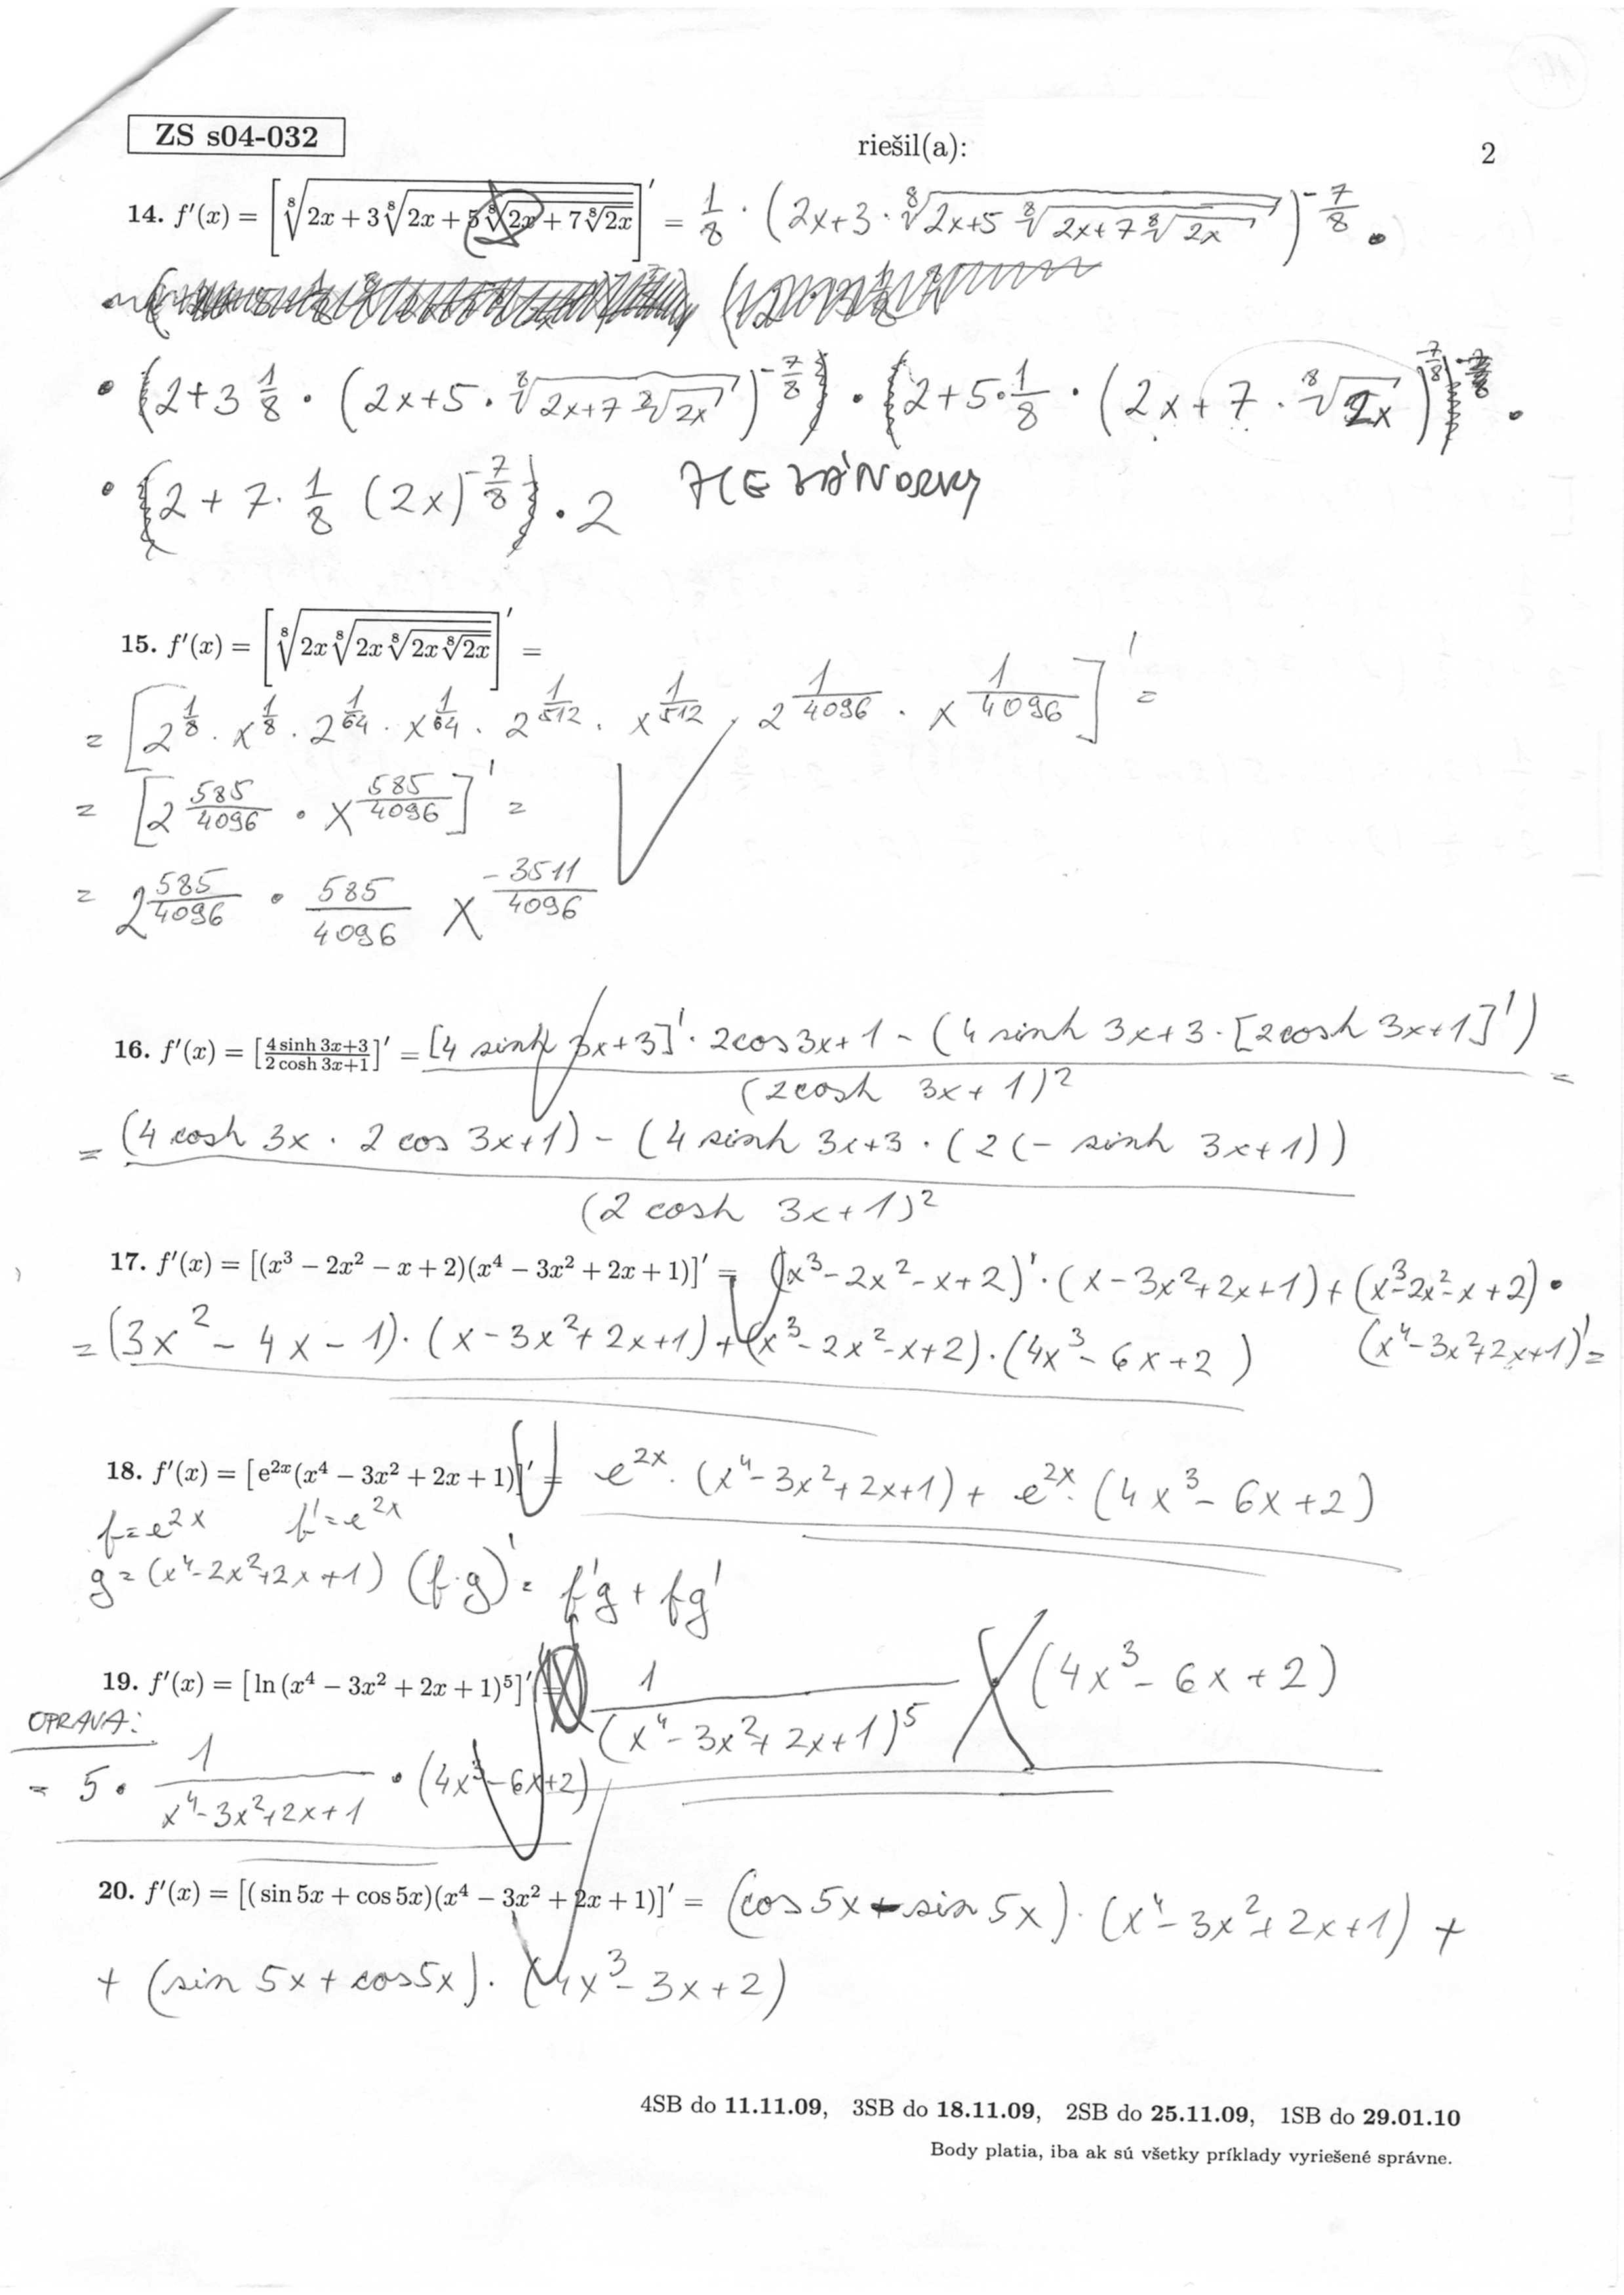 ZS s04-032 riešil(a): 2
14. f′(x) = [⁸√(2x + 3 ⁸√(2x + 5 ⁸√(2x + 7 ⁸√(2x))))]′ = 1/8 · (2x+3 · ⁸√(2x+5 ⁸√(2x+7 ⁸√(2x))))^(-7/8) ·
· {2+3 1/8 · (2x+5 · ⁸√(2x+7 ⁸√(2x)))^(-7/8)} · {2+5·1/8 · (2x+7 · ⁸√(2x))^(-7/8)} ·
· {2 + 7 · 1/8 (2x)^(-7/8)} · 2
15. f′(x) = [⁸√(2x ⁸√(2x ⁸√(2x ⁸√(2x))))]′ =
= [2^(1/8) · x^(1/8) · 2^(1/64) · x^(1/64) · 2^(1/512) · x^(1/512) · 2^(1/4096) · x^(1/4096)]′ =
= [2^(585/4096) · x^(585/4096)]′ =
= 2^(585/4096) · 585/4096 x^(-3511/4096)
16. f′(x) = [(4 sinh 3x+3)/(2 cosh 3x+1)]′ = ([4 sinh 3x+3]′ · 2cos 3x+1 - (4 sinh 3x+3 · [2cosh 3x+1]′))/(2cosh 3x+1)² =
= ((4 cosh 3x · 2 cos 3x+1) - (4 sinh 3x+3 · (2 (- sinh 3x+1))))/(2 cosh 3x+1)²
17. f′(x) = [(x³ − 2x² − x + 2)(x⁴ − 3x² + 2x + 1)]′ = (x³-2x²-x+2)′ · (x-3x²+2x+1) + (x³-2x²-x+2) ·
(x⁴-3x²+2x+1)′ =
= (3x² - 4x - 1) · (x-3x²+2x+1) + (x³-2x²-x+2) · (4x³-6x+2)
18. f′(x) = [e²ˣ(x⁴ − 3x² + 2x + 1)]′ = e²ˣ · (x⁴-3x²+2x+1) + e²ˣ · (4x³-6x+2)
f=e²ˣ f′=e²ˣ
g=(x⁴-2x²+2x+1) (f·g)′ = f′g + fg′
19. f′(x) = [ln (x⁴ − 3x² + 2x + 1)⁵]′ = 1/(x⁴-3x²+2x+1)⁵ (4x³-6x+2)
OPRAVA:
= 5 · 1/(x⁴-3x²+2x+1) · (4x³-6x+2)
20. f′(x) = [(sin 5x + cos 5x)(x⁴ − 3x² + 2x + 1)]′ = (cos 5x - sin 5x) · (x⁴-3x²+2x+1) +
+ (sin 5x + cos 5x) · (4x³-3x+2)
4SB do 11.11.09, 3SB do 18.11.09, 2SB do 25.11.09, 1SB do 29.01.10
Body platia, iba ak sú všetky príklady vyriešené správne.